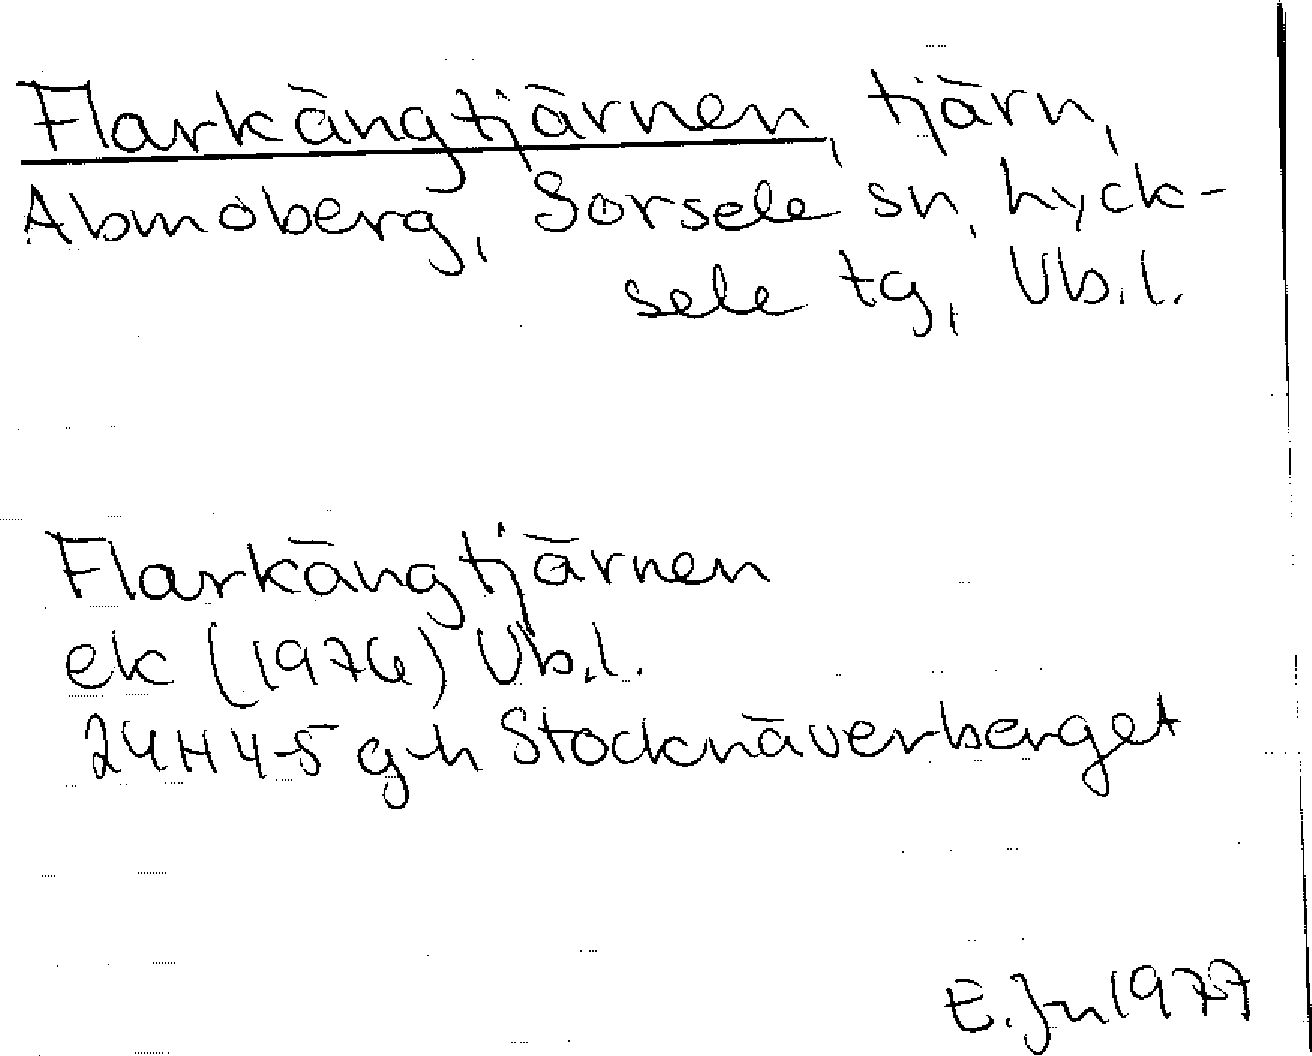 Flarkängtjärnen, tjärn,
Abmoberg, Sorsele sn, Lyck-
sele tg, Vb.l.
Flarkängtjärnen
ek (1976) Vb.l.
24H 4-5 g-h Stocknäverberget
E. Jn 1977